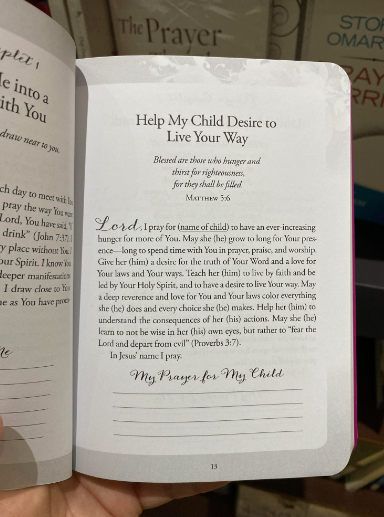 The Prayer
STO
OMAR
draw near to you.
ch day to meet with
pray the way You
Lord, You have said,
drink" (John 7:37).
place without You.
our Spirit. I know
deeper manifestation
I draw close to Yo
as You have
Me
Help My Child Desire to
Live Your Way
Blessed are those who hunger and
thirst for righteousness,
for they shall be filled.
MATTHEW 5:6
Lord, I pray for (name of child) to have an ever-increasing
hunger for more of You. May she (he) grow to long for Your pres-
ence—long to spend time with You in prayer, praise, and worship.
Give her (him) a desire for the truth of Your Word and a love for
Your laws and Your ways. Teach her (him) to live by faith and be
led by Your Holy Spirit, and to have a desire to live Your way. May
a deep reverence and love for You and Your laws color everything
she (he) does and every choice she (he) makes. Help her (him) to
understand the consequences of her (his) actions. May she (he)
learn to not be wise in her (his) own eyes, but rather to "fear the
Lord and depart from evil" (Proverbs 3:7).
In Jesus' name I pray.
My Prayer for My Child
13